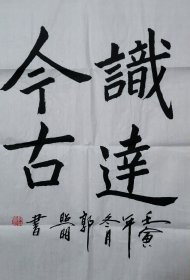 識達
今古
壬寅年冬月郭照明書